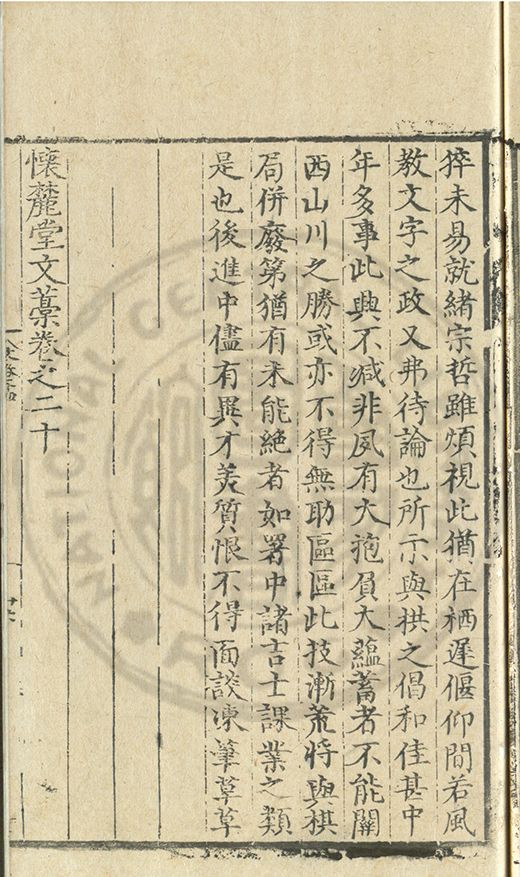 猝未易就緒宗哲雖煩視此猶在栖遲偃仰間若風
教文字之政又弗待論也所示與栱之倡和佳甚中
年多事此興不減非夙有大抱負大蘊蓄者不能關
西山川之勝或亦不得無助區區此技漸荒將與棋
局併廢第猶有未能絕者如署中諸吉士課業之類
是也後進中儘有異才美質恨不得面談凍筆草草
懷麓堂文藁卷之二十